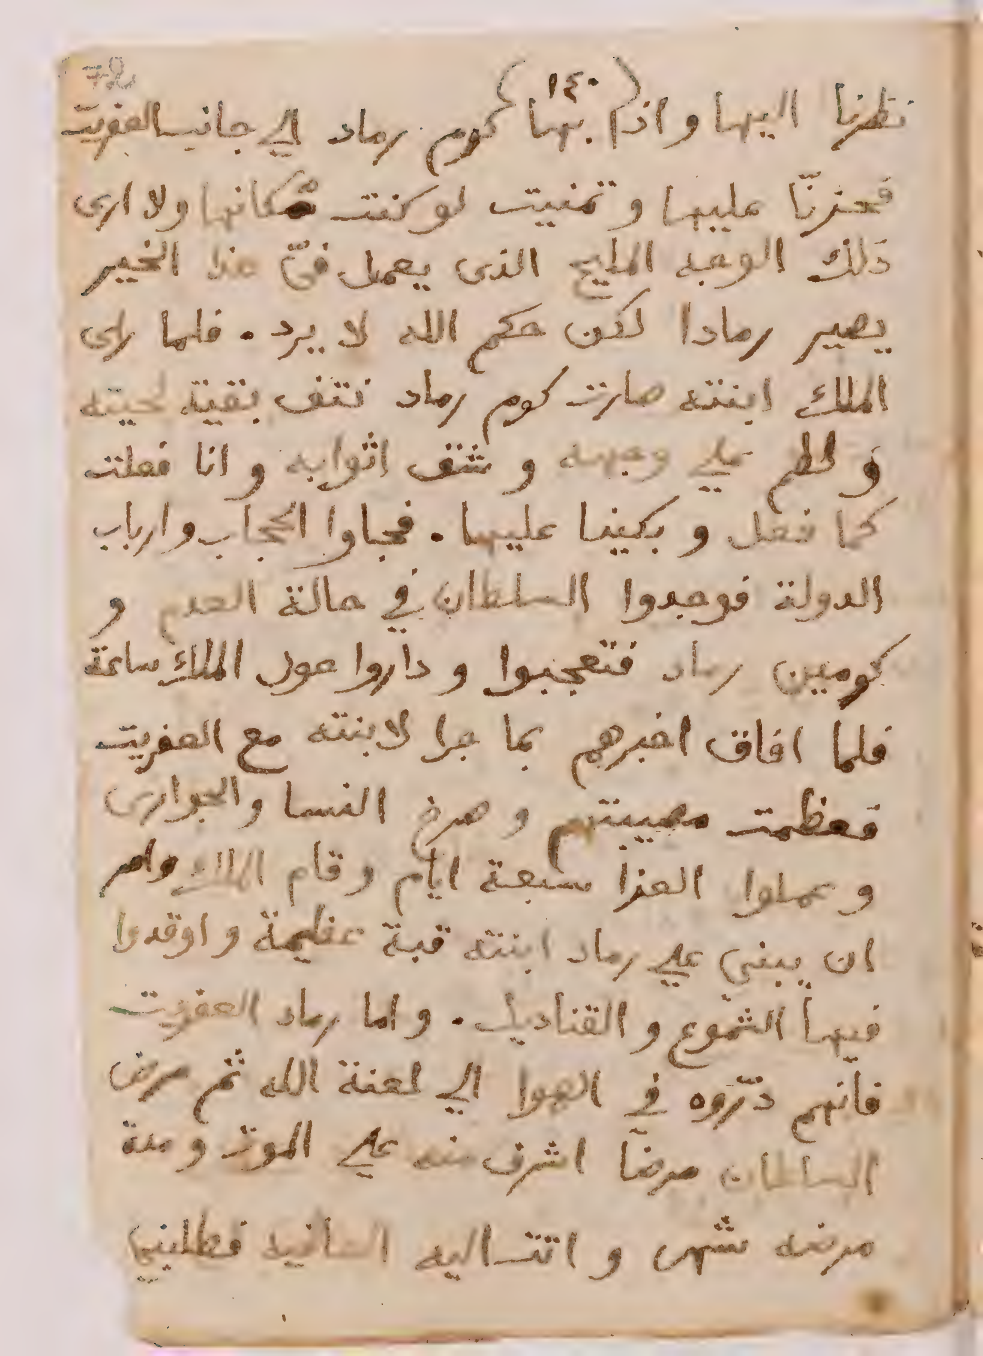 72
(١٤٠)
نظرنا اليها واذا بها كوم رماد الي جانب العفريت
فحزنّا عليها وتمنيت لو كنت مكانها ولا ارى
ذلك الوجه المليح الذى يعمل فيّ هذا الخير
يصير رمادا لكن حكم الله لا يرد . فلما راى
الملك ابنته صارت كوم رماد نتف بقية لحيته
و لطم علي وجهه و شق اثوابه و انا فعلت
كما فعل و بكينا عليها . فجاوا الحجاب وارباب
الدولة فوجدوا السلطان في حالة العدم و
كومين رماد فتعجبوا و داروا حول الملك ساعة
فلما افاق اخبرهم بما جرا لابنته مع العفريت
فعظمت مصيبتهم و صرخ النسا والجوارى
و عملوا العزا سبعة ايام و قام الملك وامر
ان يبني علي رماد ابنته قبة عظيمة و اوقدوا
فيها الشموع و القناديل . و اما رماد العفريت
فانهم ذرّوه في الهوا الي لعنة الله ثم مرض
السلطان مرضا اشرف منه علي الموت و مدة
مرضه شهر و اتت اليه العافيه فطلبني